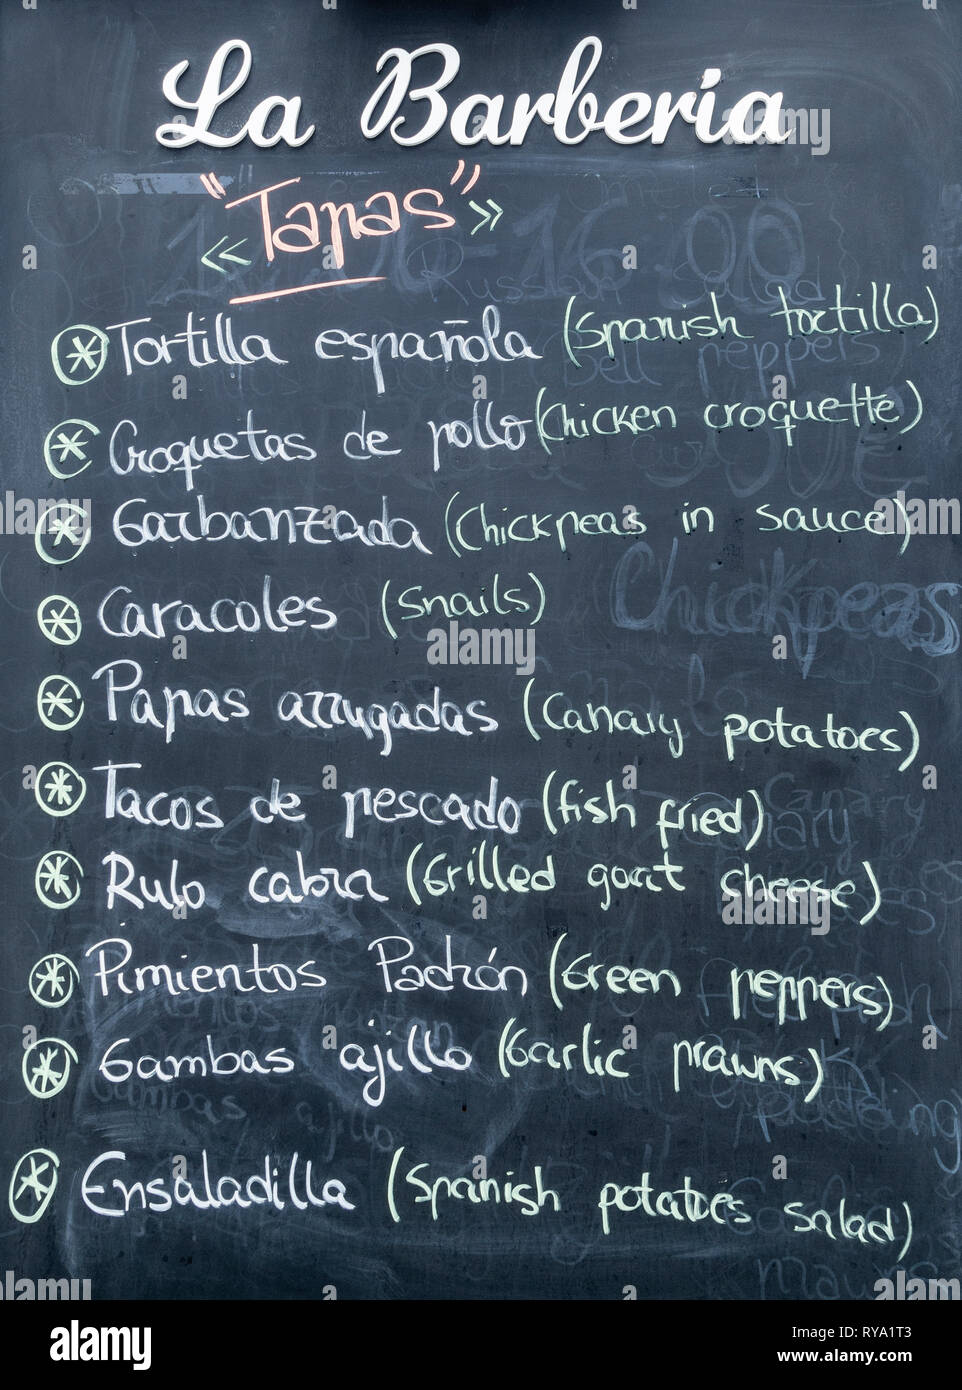 La Barberia
"Tapas"
Tortilla española (Spanish tortilla)
Croquetas de pollo (Chicken croquette)
Garbanzada (Chickpeas in sauce)
Caracoles (Snails)
Chickpeas
Papas arrugadas (Canary potatoes)
Tacos de pescado (fish fried)
Rulo cabra (Grilled goat cheese)
Pimientos Padrón (Green peppers)
Gambas ajillo (Garlic prawns)
Ensaladilla (Spanish potatoes salad)
alamy
Image ID: RYA1T3
www.alamy.com